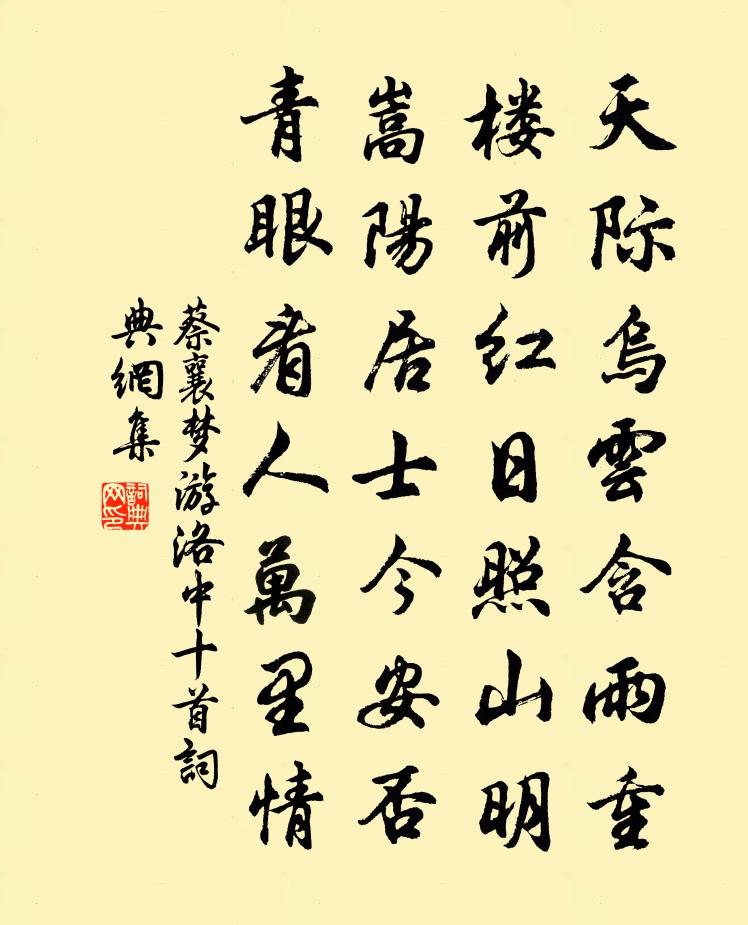 天际烏雲含雨重
楼前红日照山明
嵩陽居士今安否
青眼看人萬里情
蔡襄梦游洛中十首詞
典網集
詞典
网印